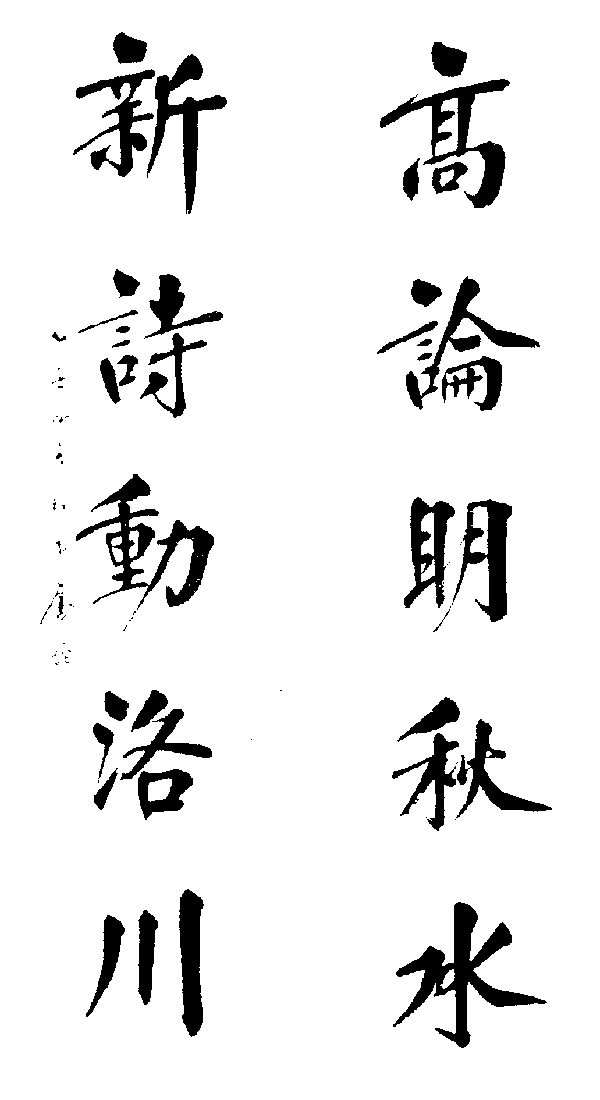 高論明秋水
新詩動洛川